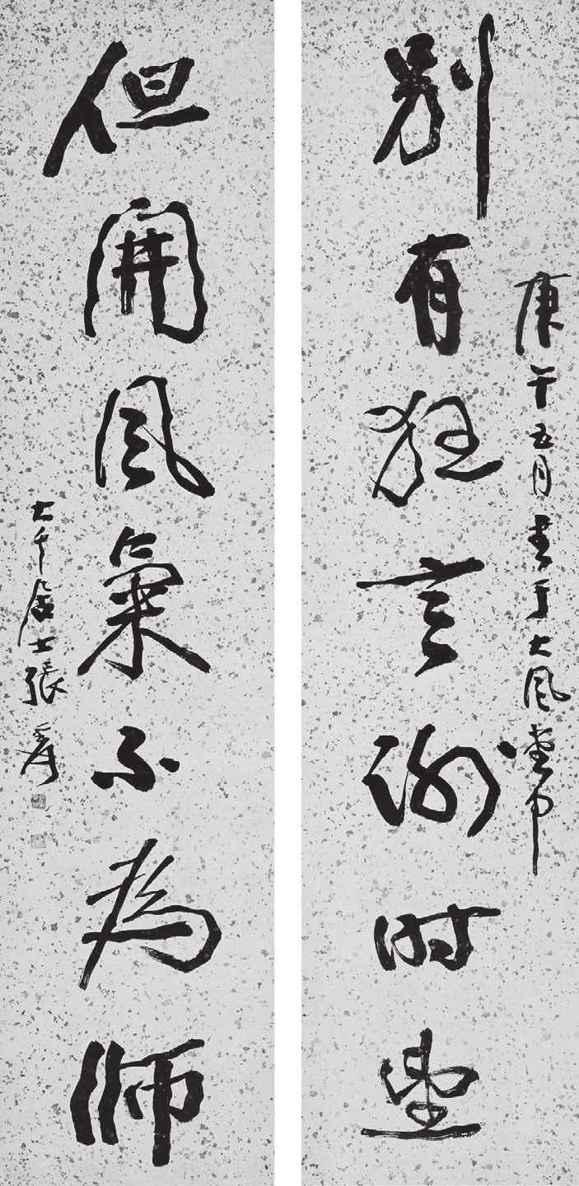 庚午五月書于大風堂中
別有狂言謝時望
但開風氣不為師
大千居士張爰